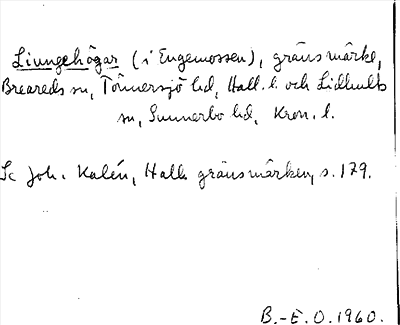 Liungehögar (i Engemossen), gränsmärke,
Breareds sn, Tönnersjö hd, Hall. l. och Lidhults
sn, Sunnerbo hd, Kron. l.
Se Joh. Kalén, Hall. gränsmärken, s. 179.
B.-E. O. 1960.